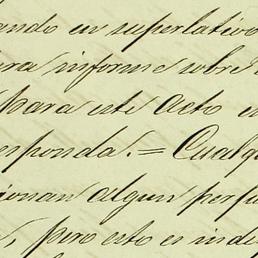 ando en superlativo
ra informe sobre
para este acto en
esponda. = Cualqu
ionan algun perju
, pero esto es inde